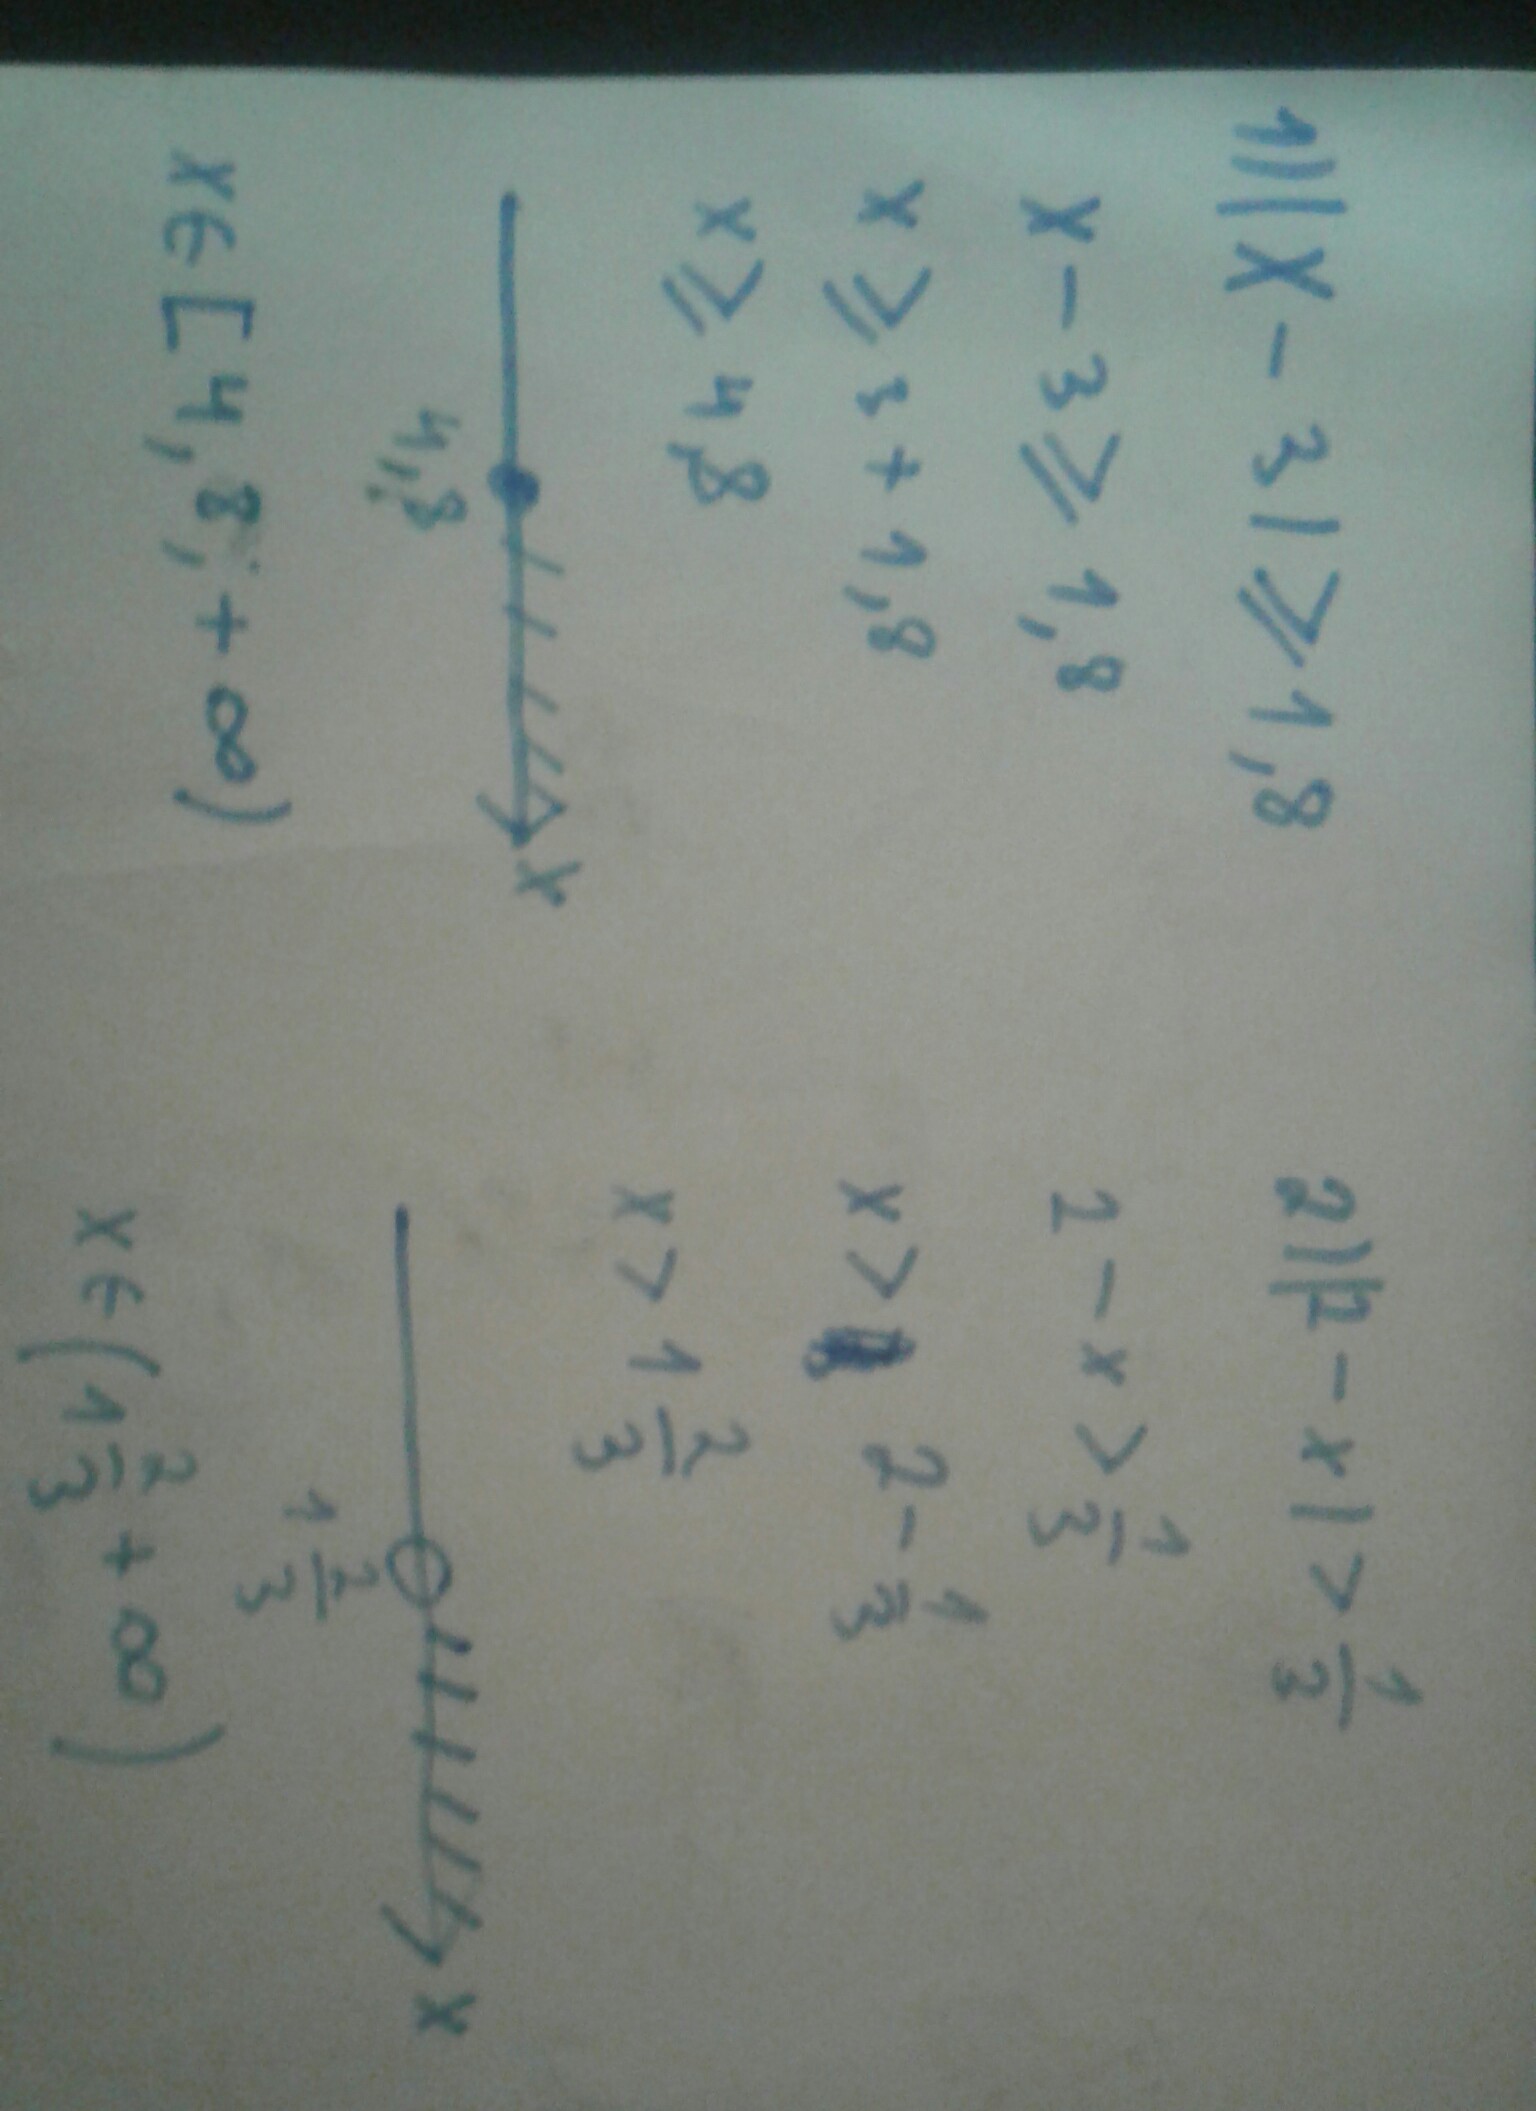 1) |x - 3| ⩾ 1,8
x - 3 ⩾ 1,8
x ⩾ 3 + 1,8
x ⩾ 4,8
x
4,8
x ∈ [4,8, + ∞)
2) |2 - x| > 1/3
2 - x > 1/3
x > 2 - 1/3
x > 1 2/3
x
1 2/3
x ∈ (1 2/3 + ∞)